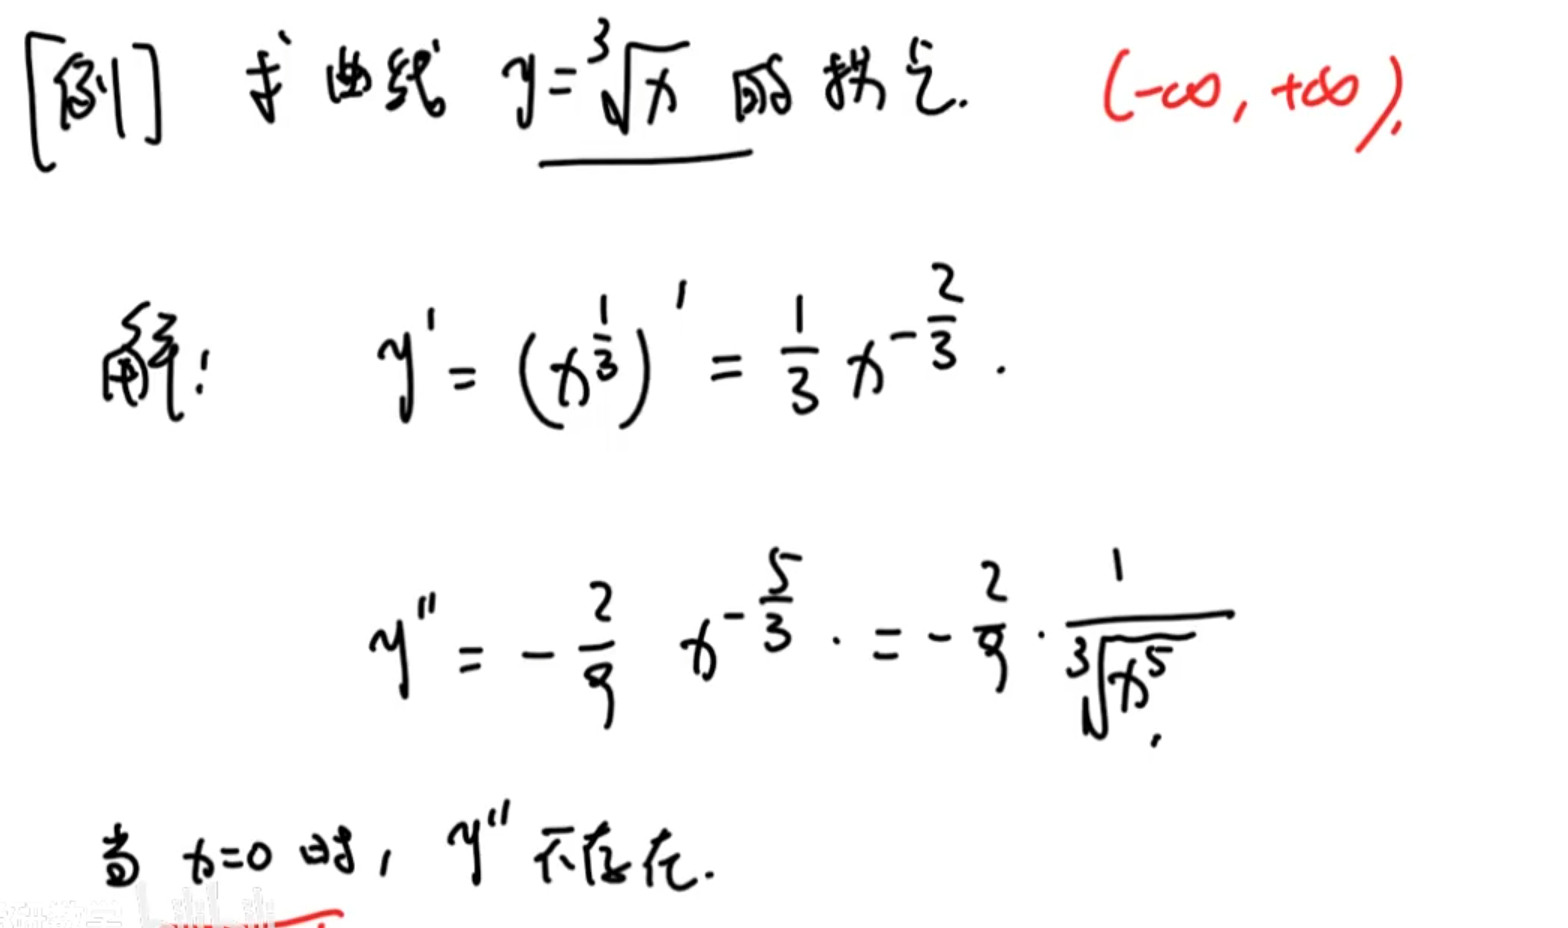 [例1] 求曲线 y=∛x 的拐点. (-∞, +∞).
解: y' = (x^{1/3})' = 1/3 x^{-2/3}.
y'' = -2/9 x^{-5/3}. = -2/9 · 1/∛(x^5).
当 x=0 时, y'' 不存在.